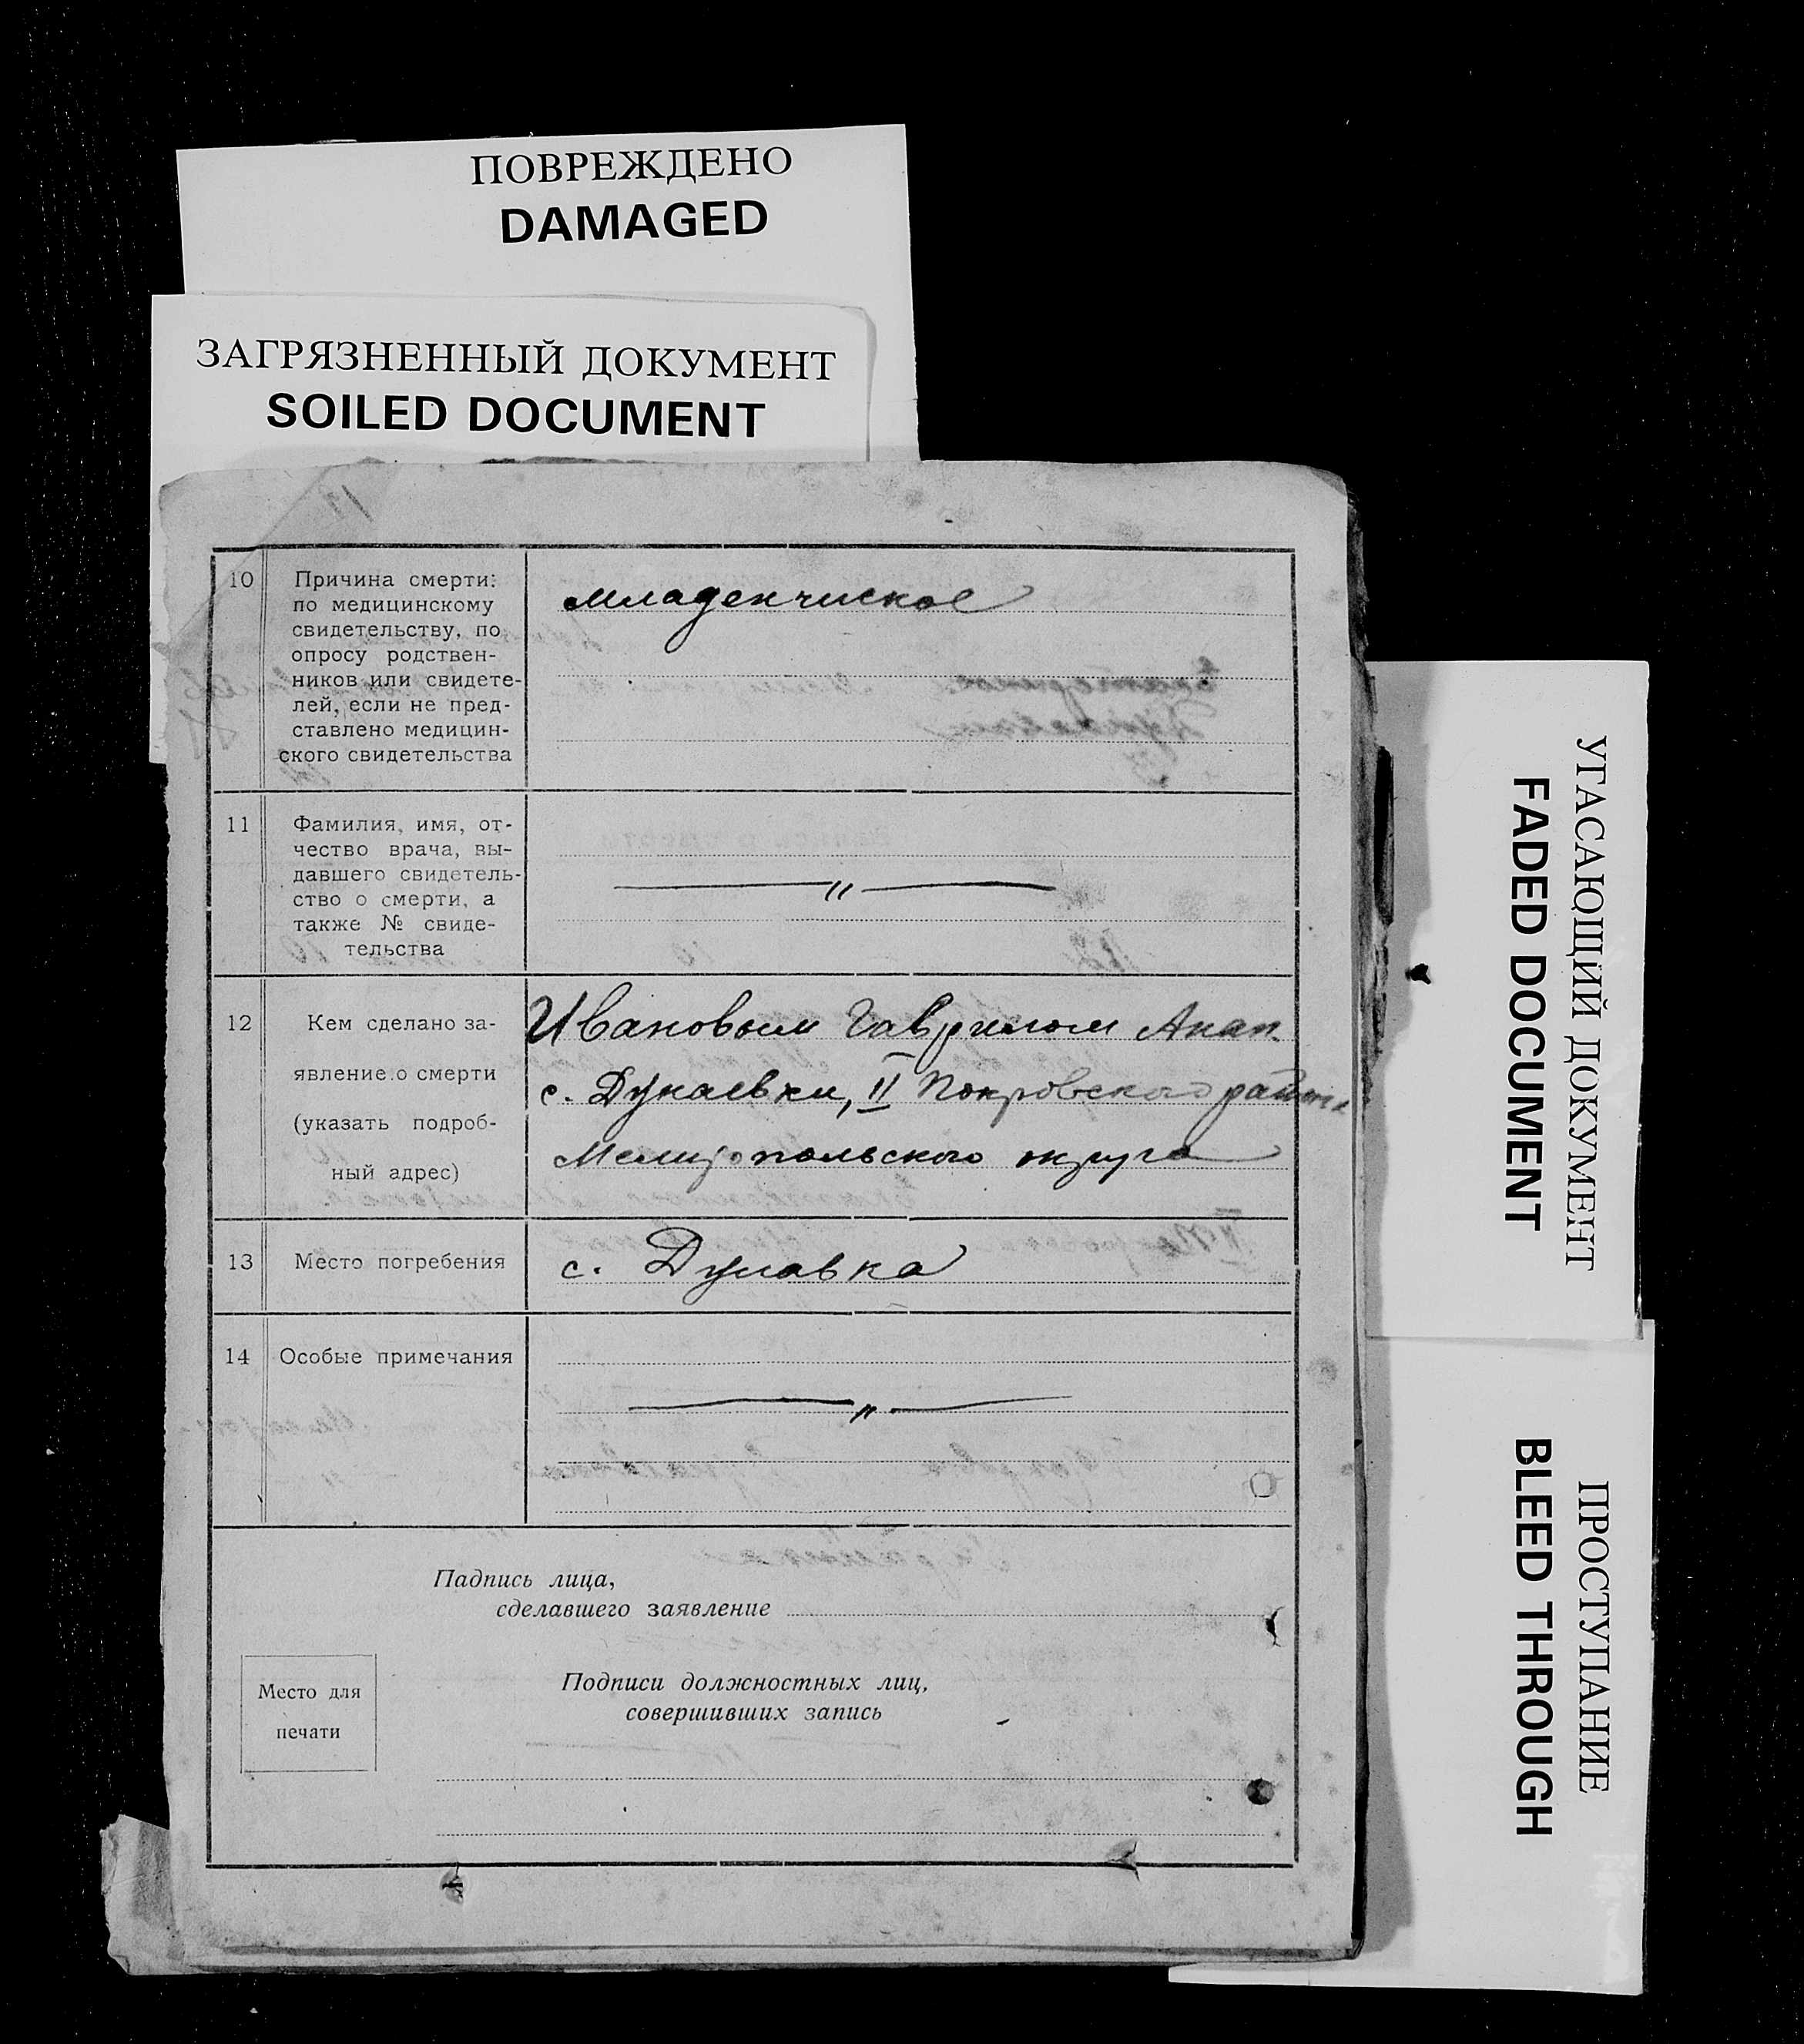 ПОВРЕЖДЕНО
DAMAGED
ЗАГРЯЗНЕННЫЙ ДОКУМЕНТ
SOILED DOCUMENT
10
Причина смерти:
по медицинскому
свидетельству, по
опросу родствен-
ников или свидете-
лей, если не пред-
ставлено медицин-
ского свидетельства
младенчиское
11
Фамилия, имя, от-
чество врача, вы-
давшего свидетель-
ство о смерти, а
также № свиде-
тельства
— " —
12
Кем сделано за-
явление о смерти
(указать подроб-
ный адрес)
Ивановым Гаврилом Анан.
с. Дунаевки, II Покровского района
Мелитопольского округа
13
Место погребения
с. Дунавка
14
Особые примечания
— " —
Падпись лица,
сделавшего заявление
Место для
печати
Подписи должностных лиц,
совершивших запись
УГАСАЮЩИЙ ДОКУМЕНТ
FADED DOCUMENT
ПРОСТУПАНИЕ
BLEED THROUGH